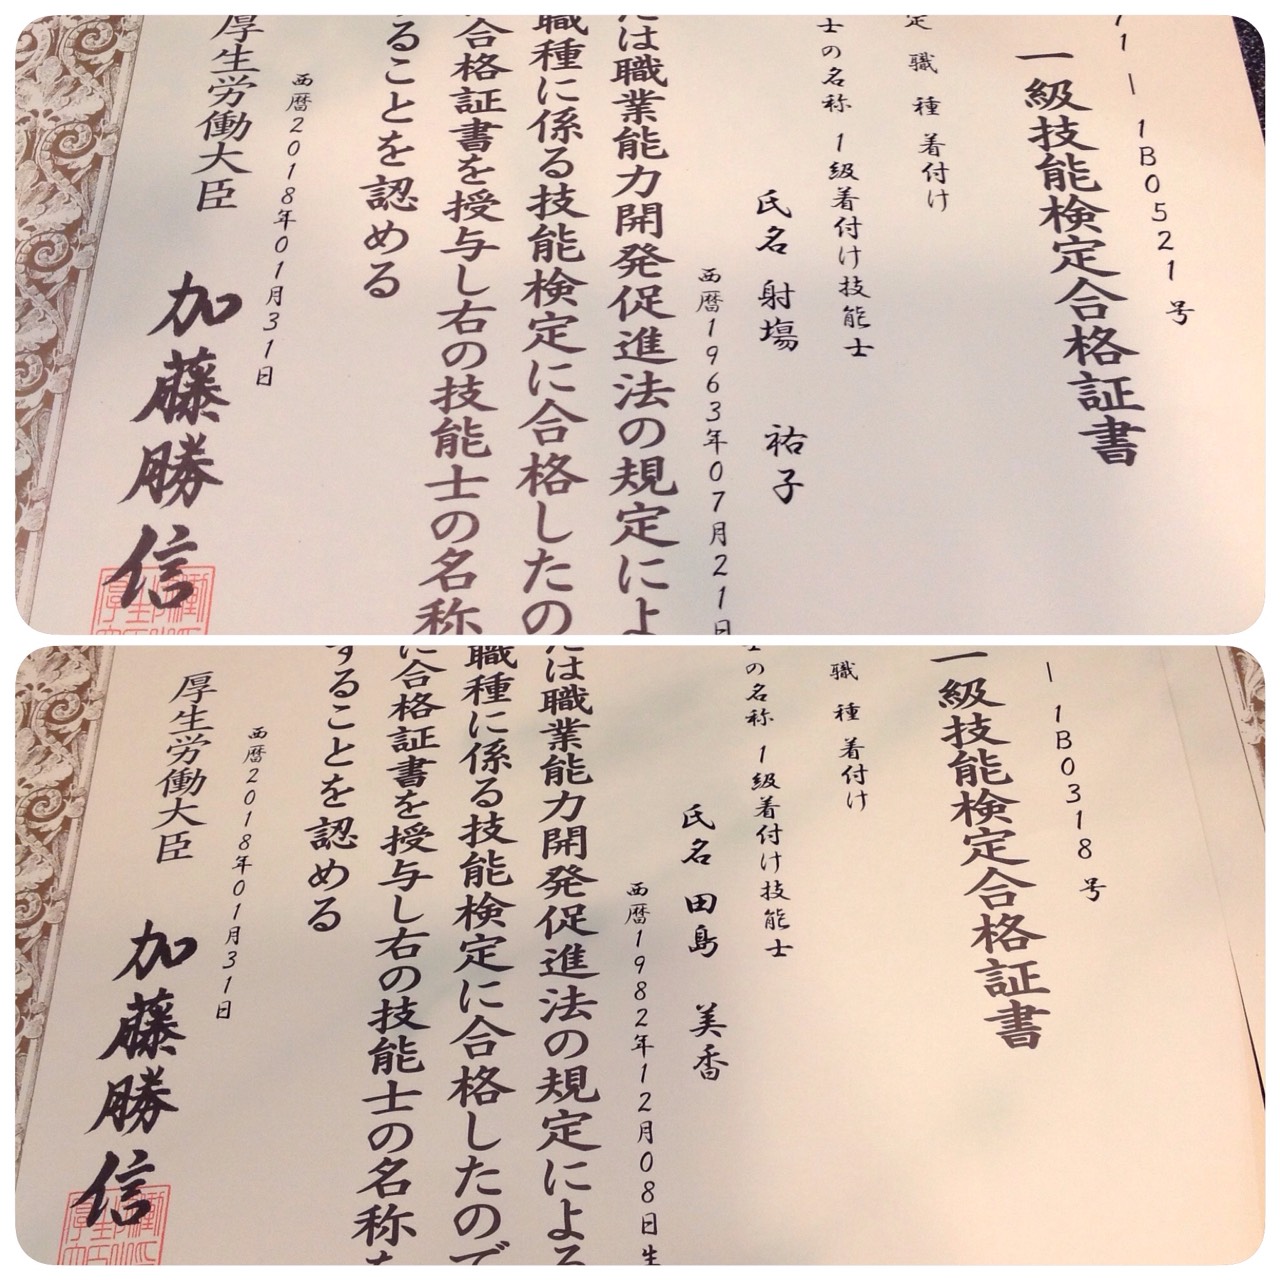 1-1B0521号
一級技能検定合格証書
職種 着付け
の名称 1級着付け技能士
氏名 射場 祐子
西暦1963年07月21日
は職業能力開発促進法の規定によ
職種に係る技能検定に合格したの
合格証書を授与し右の技能士の名称
ることを認める
西暦2018年01月31日
厚生労働大臣
加藤勝信
-1B0318号
一級技能検定合格証書
職種 着付け
の名称 1級着付け技能士
氏名 田島 美香
西暦1982年12月08日生
は職業能力開発促進法の規定による
職種に係る技能検定に合格したので
に合格証書を授与し右の技能士の名称
することを認める
西暦2018年01月31日
厚生労働大臣
加藤勝信